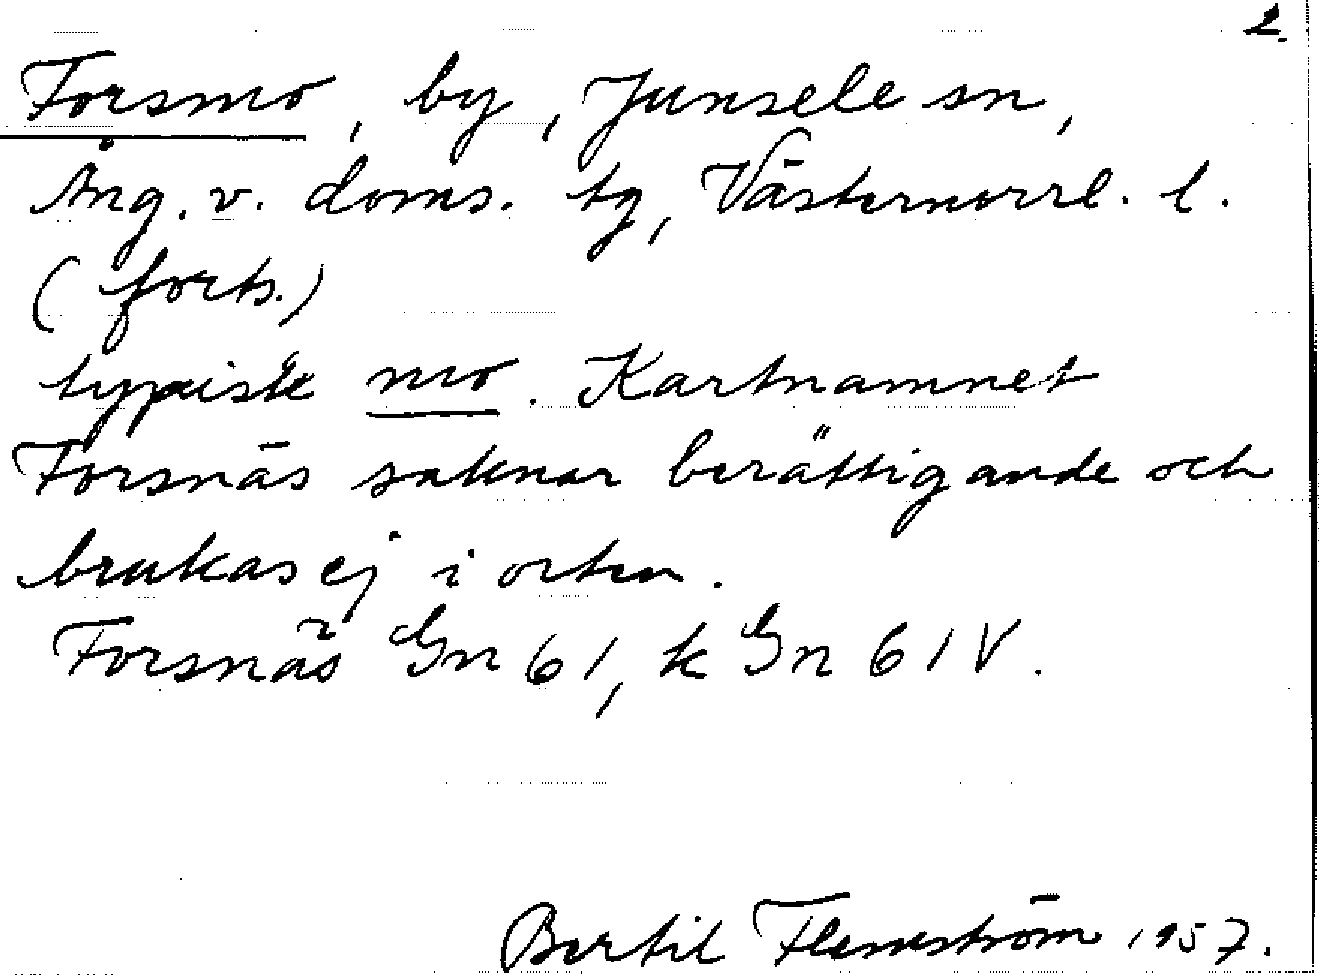 2.
Forsmo, by, Junsele sn,
Ång. v. doms. tg, Västernorrl. l.
(forts.)
typisk mo. Kartnamnet
Forsnäs saknar berättigande och
brukas ej i orten.
Forsnäs Gn 61, k Gn 61 V.
Bertil Flemström 1957.